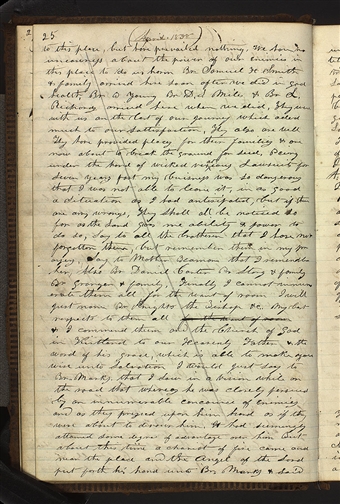 25 (April 1838)
to this place, but have prevailed nothing. We have no
uneasiness about the power of our enemies in
this place to do us harm Br Samuel H Smith
& family arrived here soon after we did in good
health. Br B Young Br D. S. Miles & Br L.
Richards arived here when we did, They were
with us on the last of our journey which aded
much to our sattisfaction, They also are well
They have provided places for their families & are
now about to break the ground for seed, Being
under the hand of wicked vexatious Lawsuits for
seven years past my buisness was so dangerous
that I was not able to leave it, in as good
a situation as I had antisipated, but if there
are any wrongs, They shall all be noticed so
far as the Lord gives me ability & power to
do so, Say to all the brethren that I have not
forgotten them, but remember them in my pr
ayers, Say to Mother Beaman that I remember
her, Also Br Daniel Carter Br Strong & family
Br Granger & family, Finally I cannot enumer
erate them all for the want of room I will
just name Br Knights the Bishop &c. My best
respects to them all for the want of room
& I commend them and the Church of God
in Kirtland to our Heavenly Father & the
word of his grace, which is able to make you
wise unto Salvation I would just say to
Br. Marks, that I saw in a vision while on
the road that whereas he was closely persued
by an innumerable concource of enemies
and as they pressed upon him hard as if they
were about to devour him, & had seemingly
attained some degree of advantage over him But
about this time a chariot of fire came and
near the place and the Angel of the Lord
put forth his hand unto Br. Marks & said